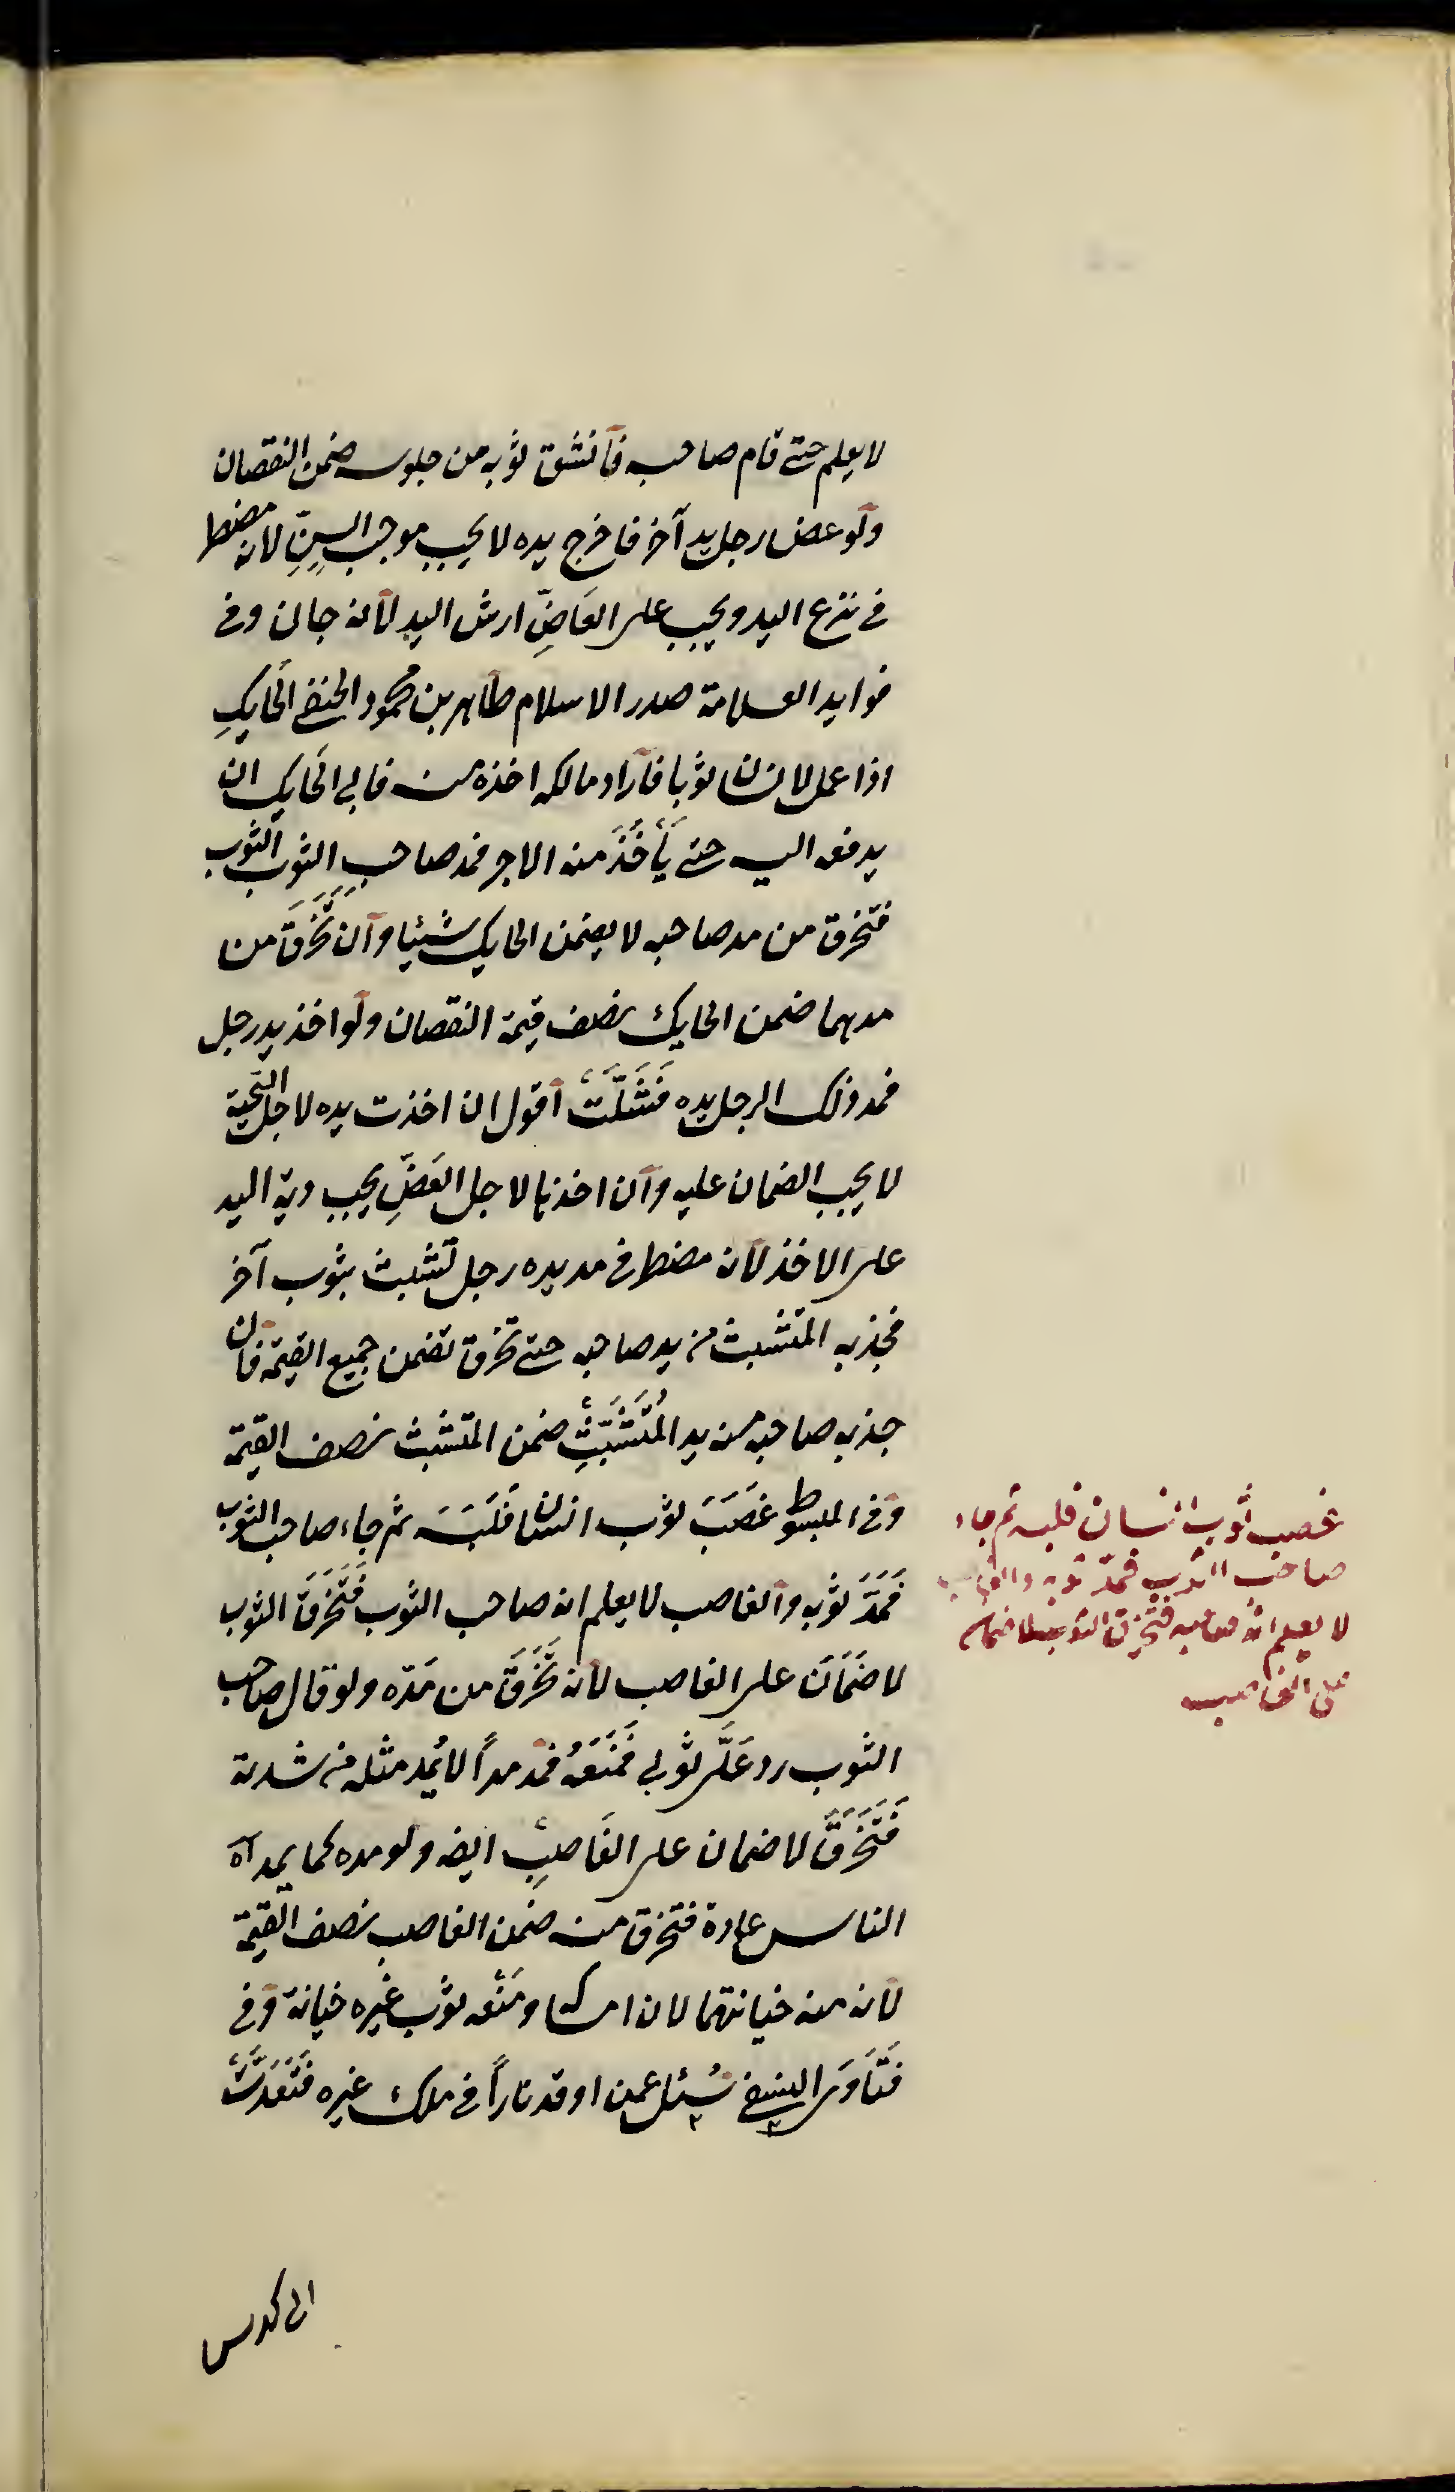 لا يعلم حتى قام صاحبه فآنشق ثوبه من جلوسه ضمن النقصان
ولو عض رجل يد آخر فاخرج يده لا يجب موجب السنِّ لانه مضطر
فى نزع اليد ويجب على العَاضِّ ارش اليد لانه جان وفى
فوايد العلامة صدر الاسلام طاهر بن محمود الحنفى الحَايكِ
اذا عمل لانسان ثوبا فآراد مالكه اخذه منه فابى الحَايك ان
يدفعه اليه حتى يَأْخُذَ منه الاجر فمد صاحبِ الثوب الثوب
فتخرق من مد صاحبه لا يضمن الحايك شيئا وآن تَخَرَّقَ من
مدهما ضمن الحايك نصف قيمة النقصان ولو اخذ يد رجل
فمد ذلك الرجل يده فَشَلَّتْ آقول ان اخذت يده لاجل التحية
لا يجب الضمان عليه وآن اخذها لاجل العَضِّ يجب دية اليد
على الاخذ لانه مضطر فى مد يده رجل تشبث بثوب آخر
فجذبه المتشبث من يد صاحبه حتى تخرق تضمن جميع القيمة فان
جذبه صاحبه من يد المُتَشَبِّثِ ضمن المتشبث نصف القيمة
وفى المبسوط غَصَبَ ثوب انسان فَلَبَسَه ثم جاء صاحب الثوب
فَمَدَّ ثوبه وآلغاصب لا يعلم انه صاحب الثوب فَتَخَرَّقَ الثوب
لا ضَمَانَ على الغاصب لانه تَخَرَّقَ من مَدّه ولو قال صاحب
الثوب رد عَلَّى ثوبى فَمَنَعَهُ فمد مداً لا يُمد مثله من شدته
فَتَخَرَّقَ لا ضمان على الغَاصبِ ايضه ولو مده كما يمد آه
الناس عادة فتخرق منه ضمن الغاصب نصف القيمة
لانه من خيانتهما لان امساك ومَنْعه ثوب غيره خيانة وفى
فَتَاوَى النسفى سُئل عمن اوقد ناراً فى ملك غيره فَتَعَدَّتْ
الى كدس
غصب ثوب انسان فلبسه ثم جاء
صاحب الثوب فمدّ ثوبه والغاصب
لا يعلم انه صاحبه فتخرق الثوب لا ضمان
على الغاصب